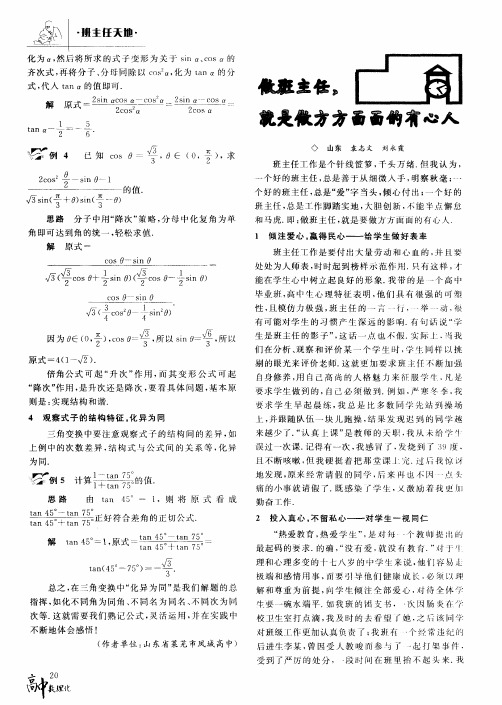 ·班主任天地·
化为α,然后将所求的式子变形为关于 sin α、cos α 的
齐次式,再将分子、分母同除以 cos²α,化为 tan α 的分
式,代入 tan α 的值即可.
解 原式=(2sin αcos α−cos²α)/(2cos²α)=(2sin α−cos α)/(2cos α)=
tan α−1/2=−5/6.
例 4 已知 cos θ=√3/3,θ∈(0,π/2),求
(2cos²(θ/2)−sin θ−1)/(√3sin(π/3+θ)sin(π/3−θ))的值.
思路 分子中用“降次”策略,分母中化复角为单
角即可达到角的统一,轻松求值.
解 原式=
(cos θ−sin θ)/(√3(√3/2 cos θ+1/2 sin θ)(√3/2 cos θ−1/2 sin θ))
(cos θ−sin θ)/(√3(3/4 cos²θ−1/4 sin²θ)).
因为 θ∈(0,π/2),cos θ=√3/3,所以 sin θ=√6/3,所以
原式=4(1−√2).
倍角公式可起“升次”作用,而其变形公式可起
“降次”作用,是升次还是降次,要看具体问题,基本原
则是:实现结构和谐.
4 观察式子的结构特征,化异为同
三角变换中要注意观察式子的结构间的差异,如
上例中的次数差异,结构式与公式间的关系等,化异
为同.
例 5 计算(1−tan 75°)/(1+tan 75°)的值.
思路 由 tan 45° = 1,则将原式看成
(tan 45°−tan 75°)/(tan 45°+tan 75°)正好符合差角的正切公式.
解 tan 45°=1,原式=(tan 45°−tan 75°)/(tan 45°+tan 75°)=
tan(45°−75°)=−√3/3.
总之,在三角变换中“化异为同”是我们解题的总
指挥,如化不同角为同角、不同名为同名、不同次为同
次等.这就需要我们熟记公式,灵活运用,并在实践中
不断地体会感悟!
(作者单位:山东省莱芜市凤城高中)
20
高中数理化
做班主任,
就是做方方面面的有心人
◇ 山东 袁志文 刘永霞
班主任工作是个针线笸箩,千头万绪.但我认为,
一个好的班主任,总是善于从细微入手,明察秋毫;一
个好的班主任,总是“爱”字当头,倾心付出;一个好的
班主任,总是工作脚踏实地,大胆创新,不能半点懈怠
和马虎.即:做班主任,就是要做方方面面的有心人.
1 倾注爱心,赢得民心——给学生做好表率
班主任工作是要付出大量劳动和心血的,并且要
处处为人师表,时时起到榜样示范作用.只有这样,才
能在学生心中树立起良好的形象.我带的是一个高中
毕业班,高中生心理特征表明,他们具有很强的可塑
性,且模仿力极强,班主任的一言一行,一举一动,很
有可能对学生的习惯产生深远的影响.有句话说“学
生是班主任的影子”,这话一点也不假.实际上,当我
们在分析、观察和评价某一个学生时,学生同样以挑
剔的眼光来评价老师.这就更加要求班主任不断加强
自身修养,用自己高尚的人格魅力来征服学生.凡是
要求学生做到的,自己必须做到.例如,严寒冬季,我
要求学生早起晨练,我总是比多数同学先站到操场
上,并跟随队伍一块儿跑操,结果发现迟到的同学越
来越少了.“认真上课”是教师的天职,我从未给学生
误过一次课.记得有一次,我感冒了,发烧到了 39 度,
且不断咳嗽,但我硬挺着把那堂课上完.过后我惊讶
地发现,原来经常请假的同学,后来再也不因一点头
痛的小事就请假了.既感染了学生,又激励着我更加
勤奋工作.
2 投入真心,不留私心——对学生一视同仁
“热爱教育,热爱学生”,是对每一个教师提出的
最起码的要求.的确,“没有爱,就没有教育.”对于生
理和心理多变的十七八岁的中学生来说,他们容易走
极端和感情用事,而要引导他们健康成长,必须以理
解和尊重为前提,向学生倾注全部爱心,对待全体学
生要一碗水端平.如我班的团支书,一次因肠炎在学
校卫生室打点滴,我及时的去看望了她,之后该同学
对班级工作更加认真负责了;我班有一个经常违纪的
后进生李某,曾因受人教唆而参与了一起打架事件,
受到了严厉的处分,一段时间在班里抬不起头来.我